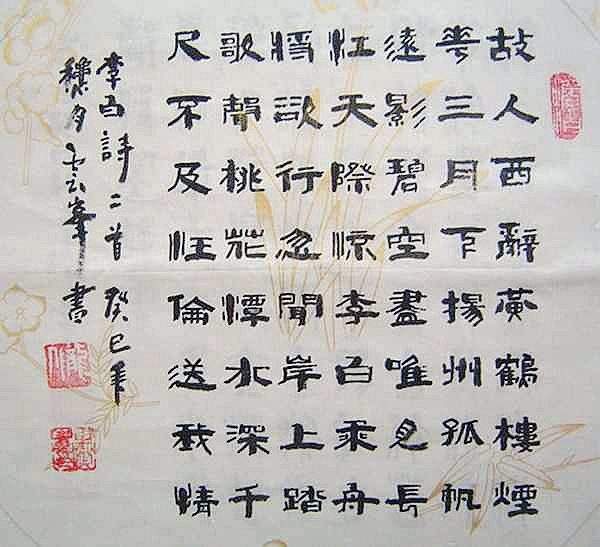 故人西辭黃鶴樓煙
華三月下揚州孤帆
遠影碧空盡唯見長
江天際流李白乘舟
將欲行忽聞岸上踏
歌聲桃花潭水深千
尺不及汪倫送我情
李白詩二首癸巳年
月雲峯書